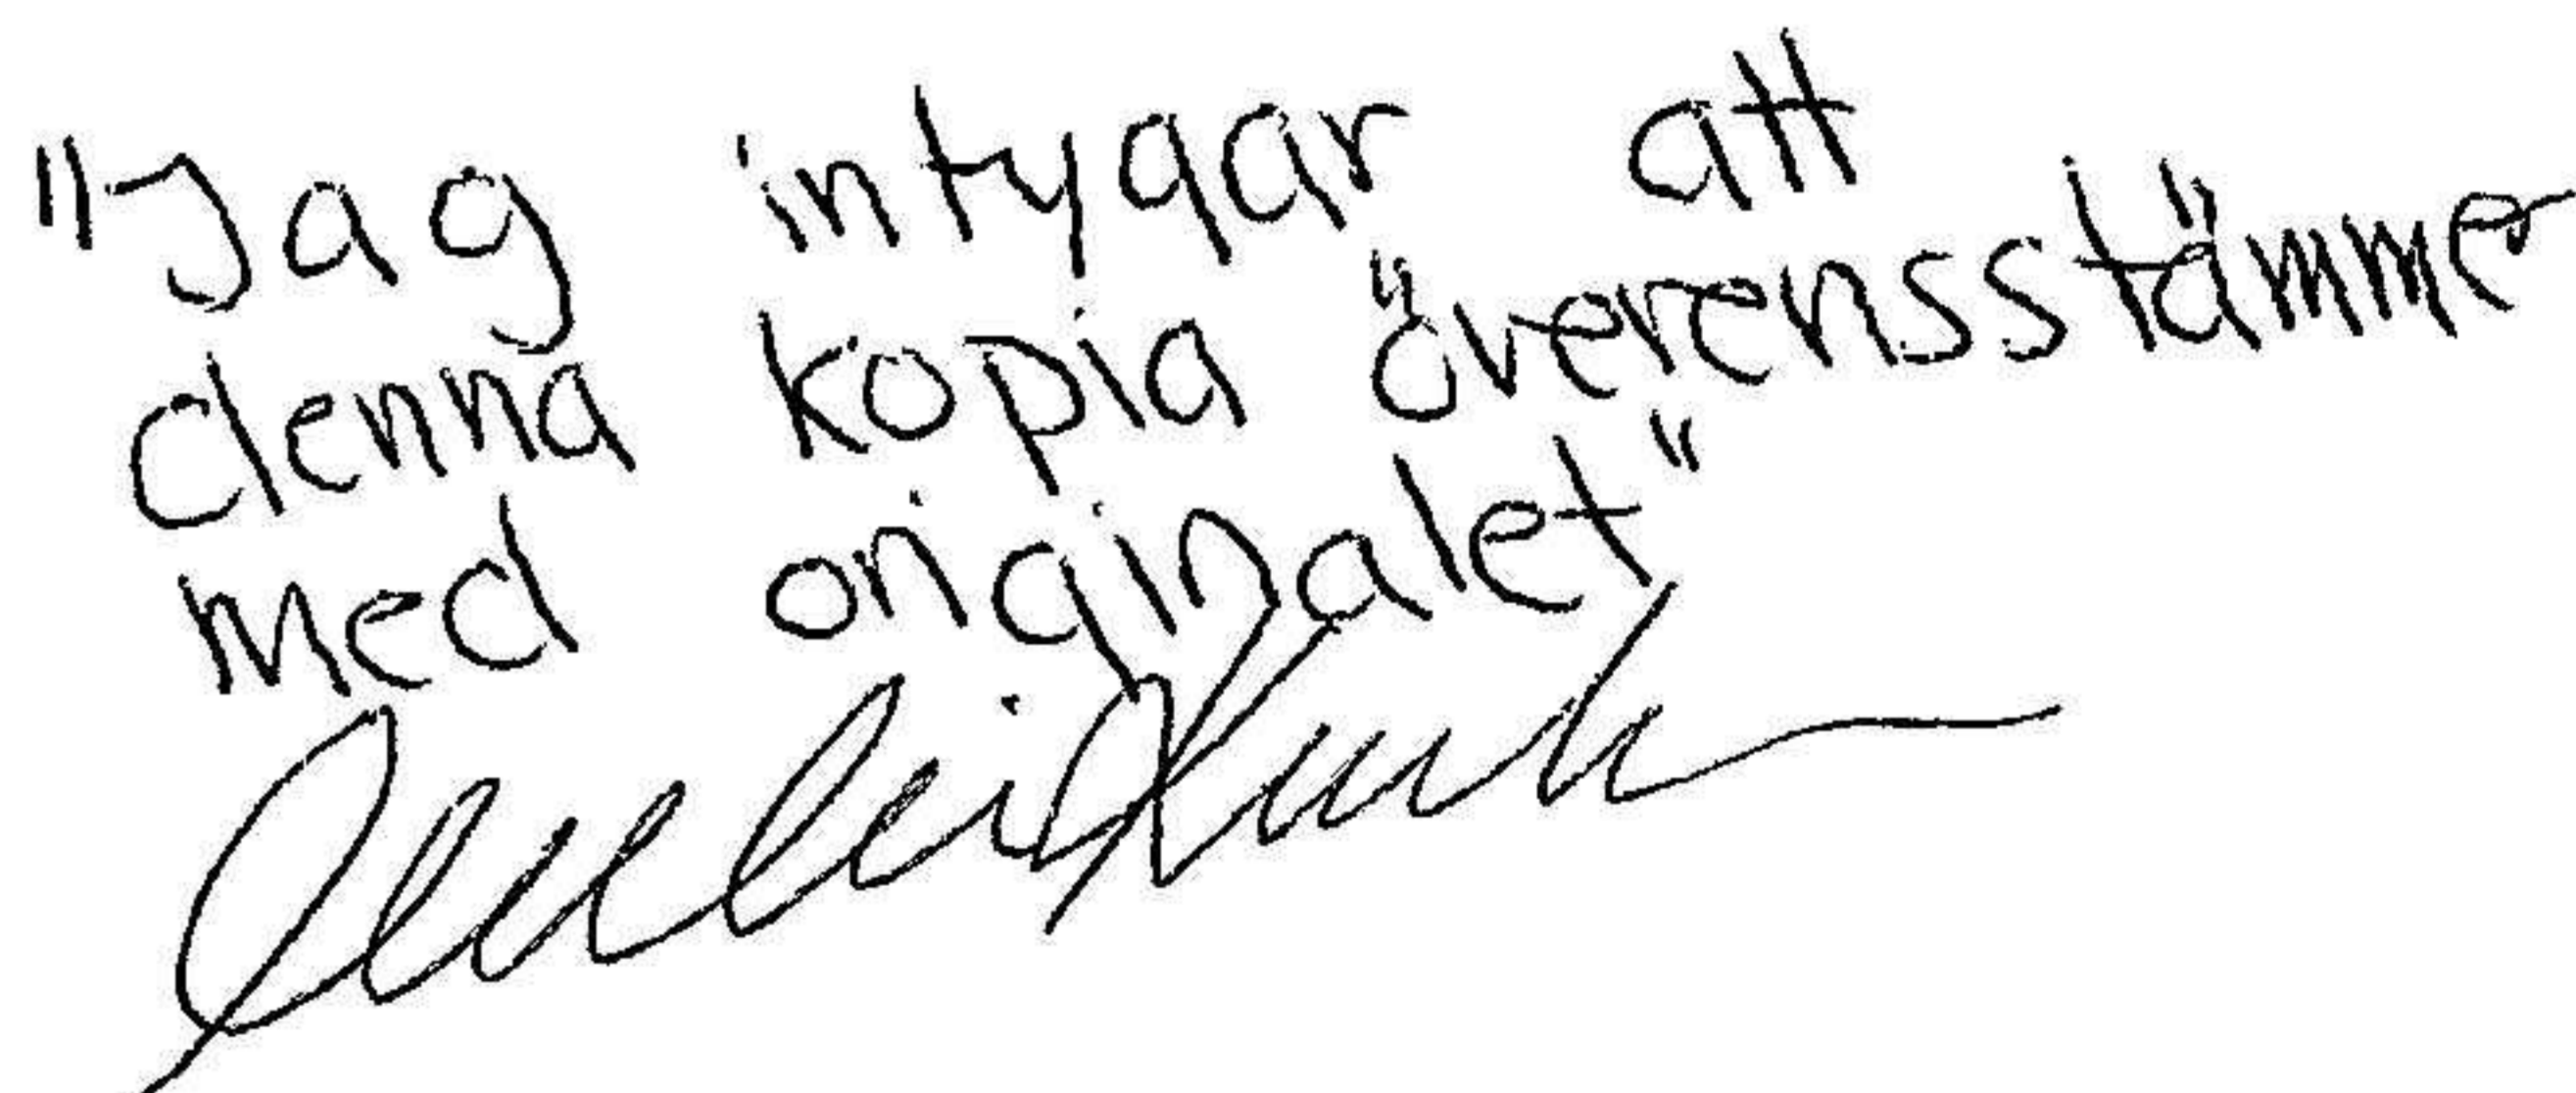 "Jag intygar att
denna kopia överensstämme
med originalet"